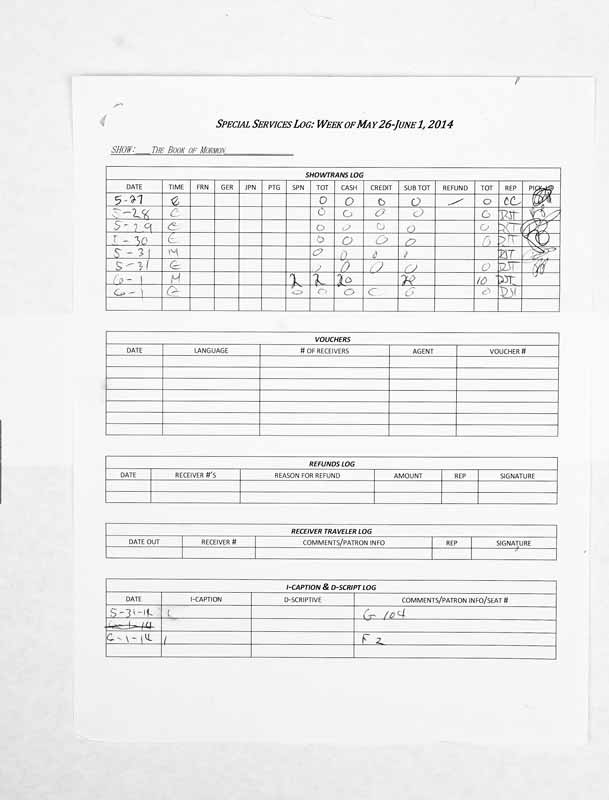 SPECIAL SERVICES LOG: WEEK OF MAY 26-JUNE 1, 2014
SHOW: THE BOOK OF MORMON
SHOWTRANS LOG
DATE TIME FRN GER JPN PTG SPN TOT CASH CREDIT SUB TOT REFUND TOT REP
5-27 E 0 0 0 0 — 0 CC
5-28 E 0 0 0 0 0 RJT
5-29 E 0 0 0 0 0 RJT
E 0 0 0 0 0 RJT
5-31 M 0 0 0 RJT
5-31 E 0 0 0 0 RJT
6-1 M 2 2 20 10 RJT
6-1 E 0 0 0 0 0 0 RJT
VOUCHERS
DATE LANGUAGE # OF RECEIVERS AGENT VOUCHER #
REFUNDS LOG
DATE RECEIVER #'S REASON FOR REFUND AMOUNT REP SIGNATURE
RECEIVER TRAVELER LOG
DATE OUT RECEIVER # COMMENTS/PATRON INFO REP SIGNATURE
I-CAPTION & D-SCRIPT LOG
DATE I-CAPTION D-SCRIPTIVE COMMENTS/PATRON INFO/SEAT #
5-31-14 1 G 104
6-1-14
6-1-14 1 F 2